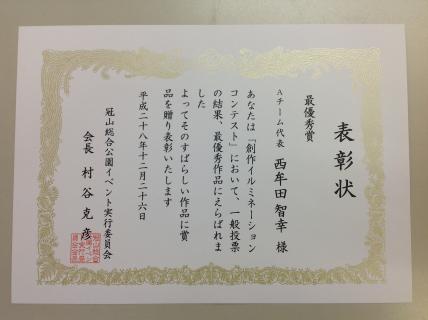 表彰状
最優秀賞
Aチーム代表 西牟田智幸 様
あなたは「創作イルミネーション
コンテスト」において、一般投票
の結果、最優秀作品にえらばれま
した
よってそのすばらしい作品に賞
品を贈り表彰いたします
平成二十八年十二月二十六日
冠山総合公園イベント実行委員会
会長 村谷克彦